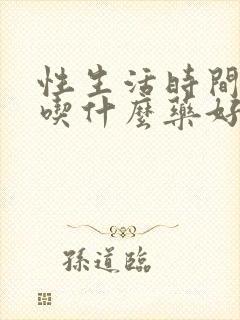 性生活時間
喫什麼藥好
孫道臨